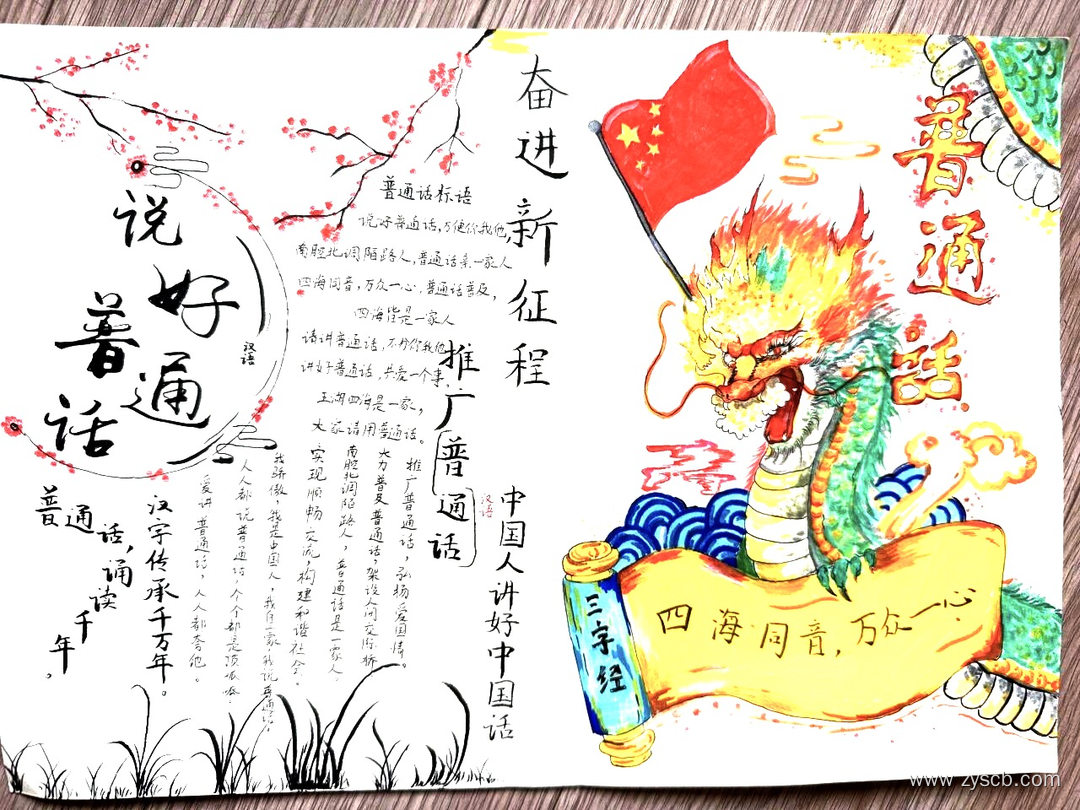 说好普通话
汉语
普通话，诵读千年。
汉字传承千万年。
普通话标语
说好普通话，方便你我他，
南腔北调陌路人，普通话亲一家人
四海同音，万众一心。普通话普及，
四海皆是一家人
请讲普通话，不分你我他
讲好普通话，共爱一个事，
五湖四海是一家，
大家请用普通话。
推广普通话，弘扬爱国情。
大力普及普通话，架设人间交际桥
南腔北调陌路人，普通话是一家人
实现顺畅交流，构建和谐社会。
我骄傲，我是中国人，我自豪，我说普通话。
人人都说普通话，个个都是顶呱呱。
爱讲普通话，人人都夸他。
奋进新征程
推广普通话
汉语
中国人讲好中国话
普通话
三字经
四海同音，万众一心。
www.zyscb.com